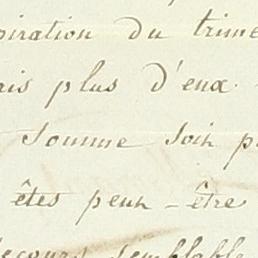 piration du trime
ais plus d'eux.
somme soit p
êtes peut-être
ecours semblable